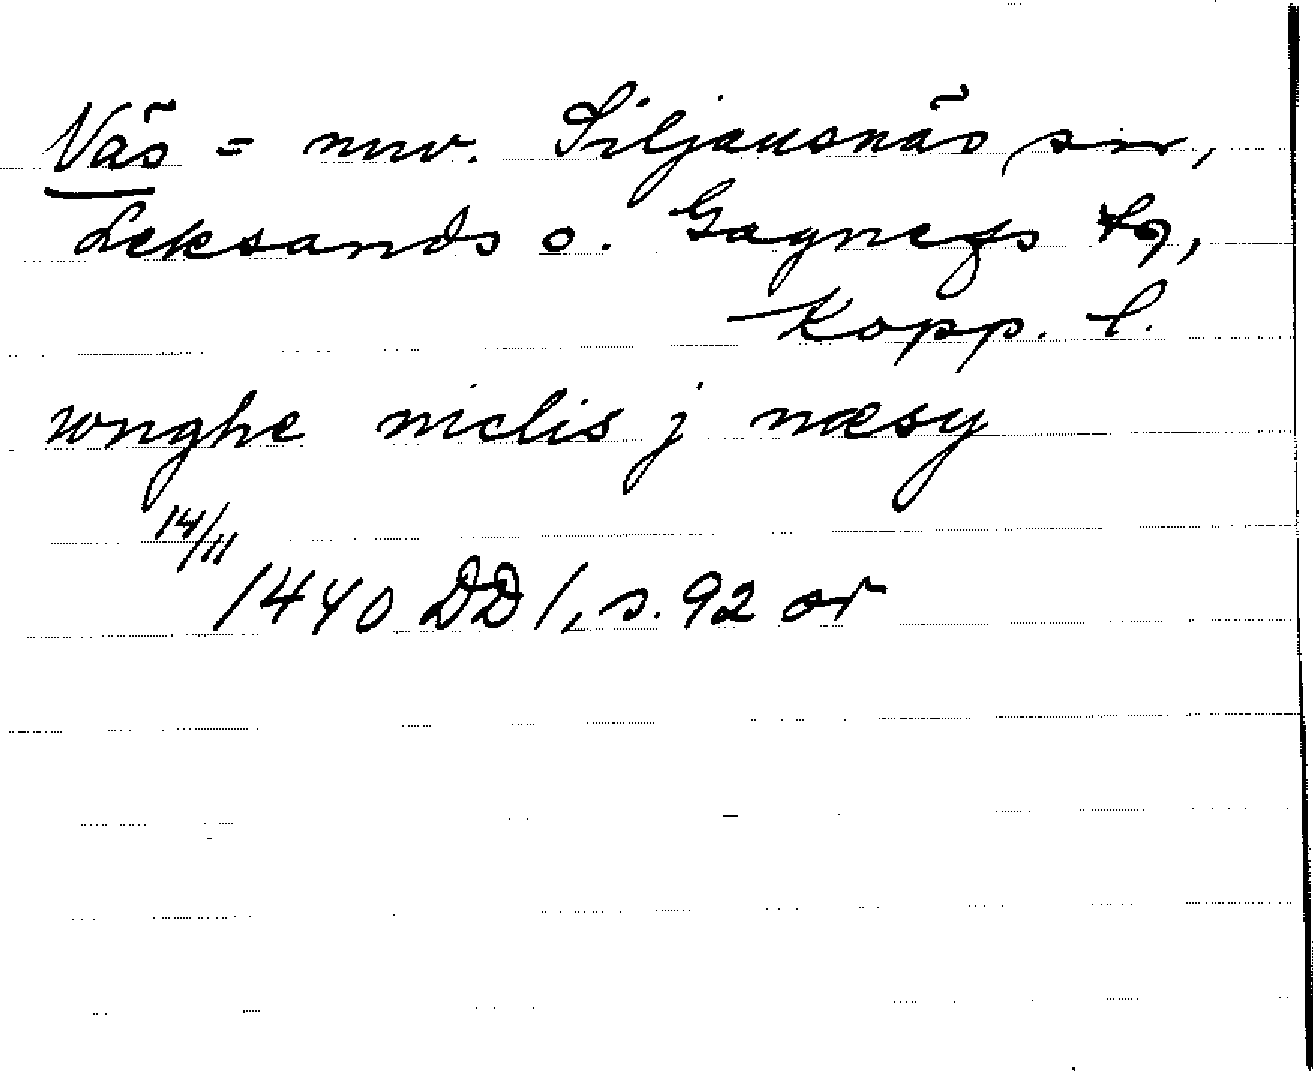 Näs = nuv. Siljansnäs sn,
Leksands o. Gagnefs tg,
Kopp. l.
wnghe niclis j næsy
14/11
1440 DD 1, s. 92 or